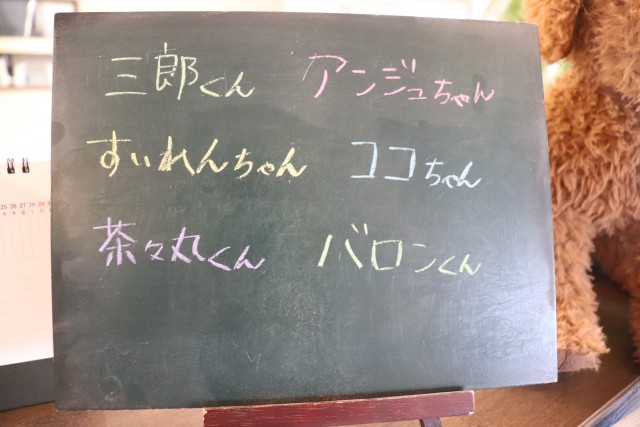 三郎くん アンジュちゃん
すいれんちゃん ココちゃん
茶々丸くん バロンくん
25 26 27 28 29